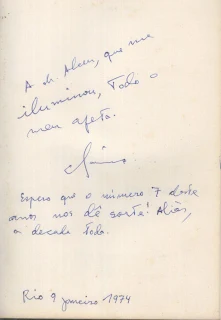 A d. Alceu, que me
iluminou, todo o
meu afeto.
Espero que o número 7 deste
ano nos dê sorte! Aliás,
a decada toda.
Rio 9 janeiro 1974